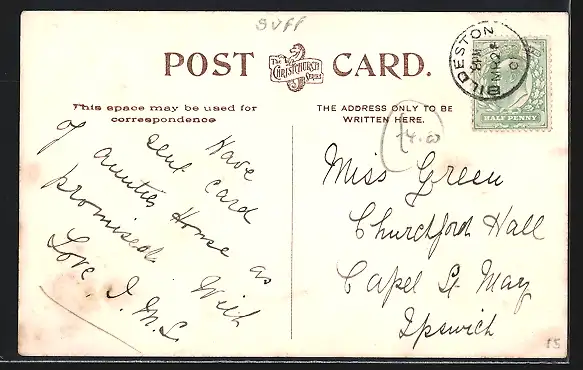 SUFF
POST CARD.
The
CHRISTCHURCH
Series
This space may be used for
correspondence
THE ADDRESS ONLY TO BE
WRITTEN HERE.
ILDESTON
HALF PENNY
Have
sent card
of aunties Home as
promised. With
Love. I. M. L.
Miss Green
Churchford Hall
Capel St. Mary
Ipswich
15